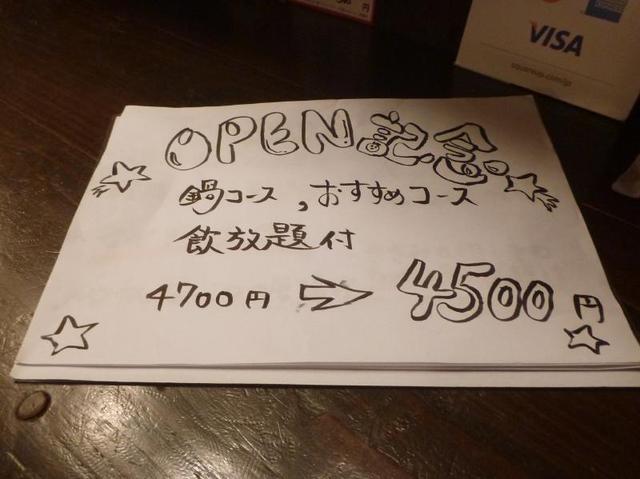 VISA
squareup.com/jp
OPEN記念
鍋コース,おすすめコース
飲放題付
4700円 ⇨ 4500円